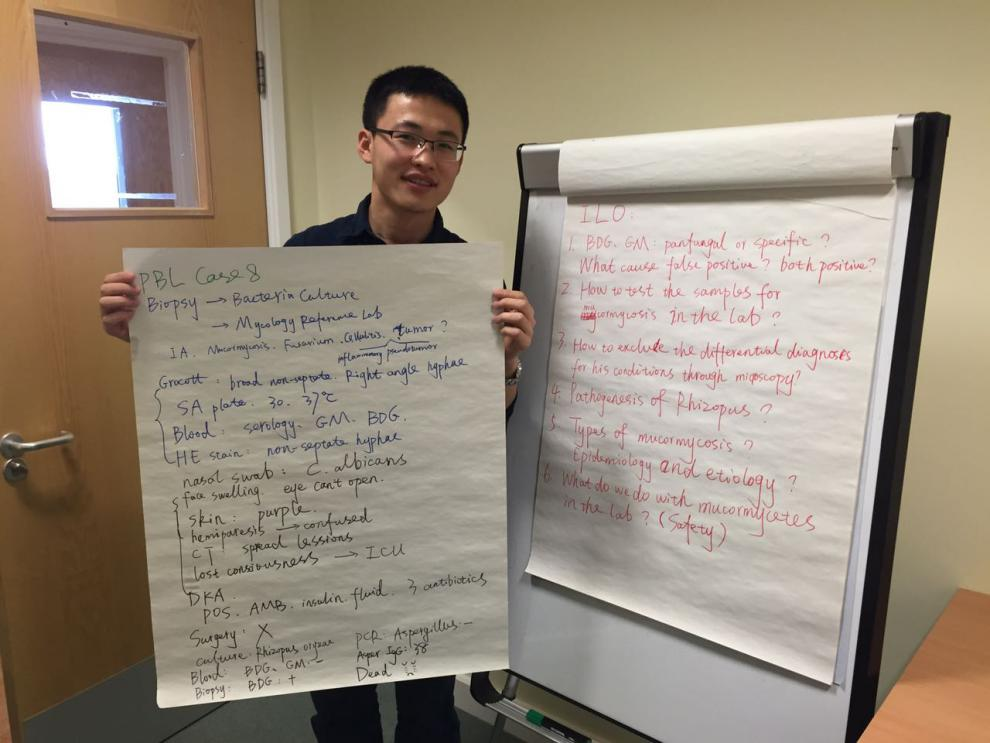 PBL Case 8
Biopsy → Bacteria Culture
→ Mycology Reference Lab
IA. Mucormycosis. Fusarium. Cellulitis. tumor ?
inflammary pseudotumor
Grocott : broad non-septate. Right angle hyphae
SA plate. 30. 37°C
Blood : serology. GM. BDG.
HE stain : non-septate hyphae
nasal swab : C. albicans
face swelling. eye can't open.
skin : purple.
hemiparesis → confused
CT spread lessions
lost consiousness → ICU
DKA.
POS. AMB. insulin. fluid. 3 antibiotics
Surgery : X
culture : Rhizopus oryzae
Blood : BDG. GM. -
Biopsy : BDG : +
PCR : Aspergillus : -
Asper IgG : 38
Dead
ILO:
1. BDG. GM : panfungal or specific ?
What cause false positive ? both positive?
2. How to test the samples for
mucormycosis in the lab ?
3. How to exclude the differential diagnoses
for his conditions through microscopy?
4. Pathogenesis of Rhizopus ?
5. Types of mucormycosis ?
Epidemiology and etiology ?
6. What do we do with mucormycetes
in the lab ? (Safety)